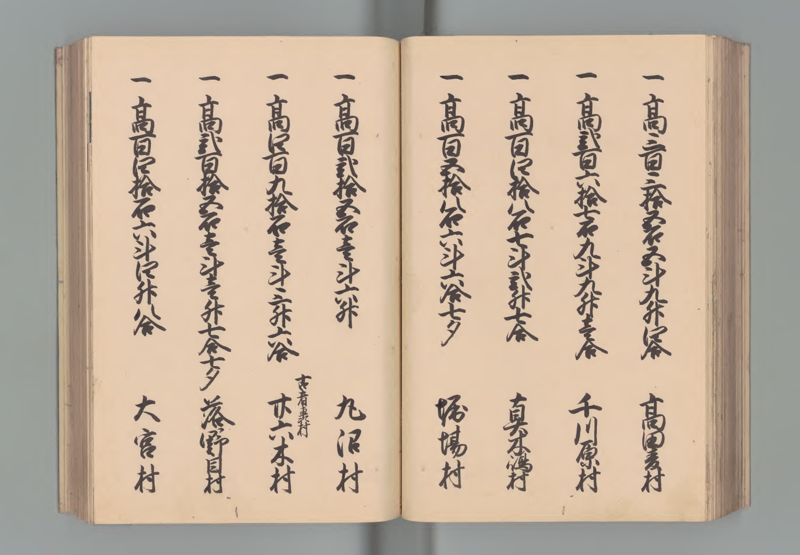 一 高三百三拾五石五斗九升四合 高田麦村
一 高弐百六拾七石九斗九升壱合 千川原村
一 高百四拾八石七斗弐升七合 真木嶋村
一 高百五拾八石六斗六合七夕 堀場村
一 高百弐拾五石壱斗六升 九沼村
一 高四百九拾石壱斗三升六合 古者夷村 廿六木村
一 高弐百拾五石壱斗壱升七合七夕 落野目村
一 高百四拾石六斗四升八合 大宮村